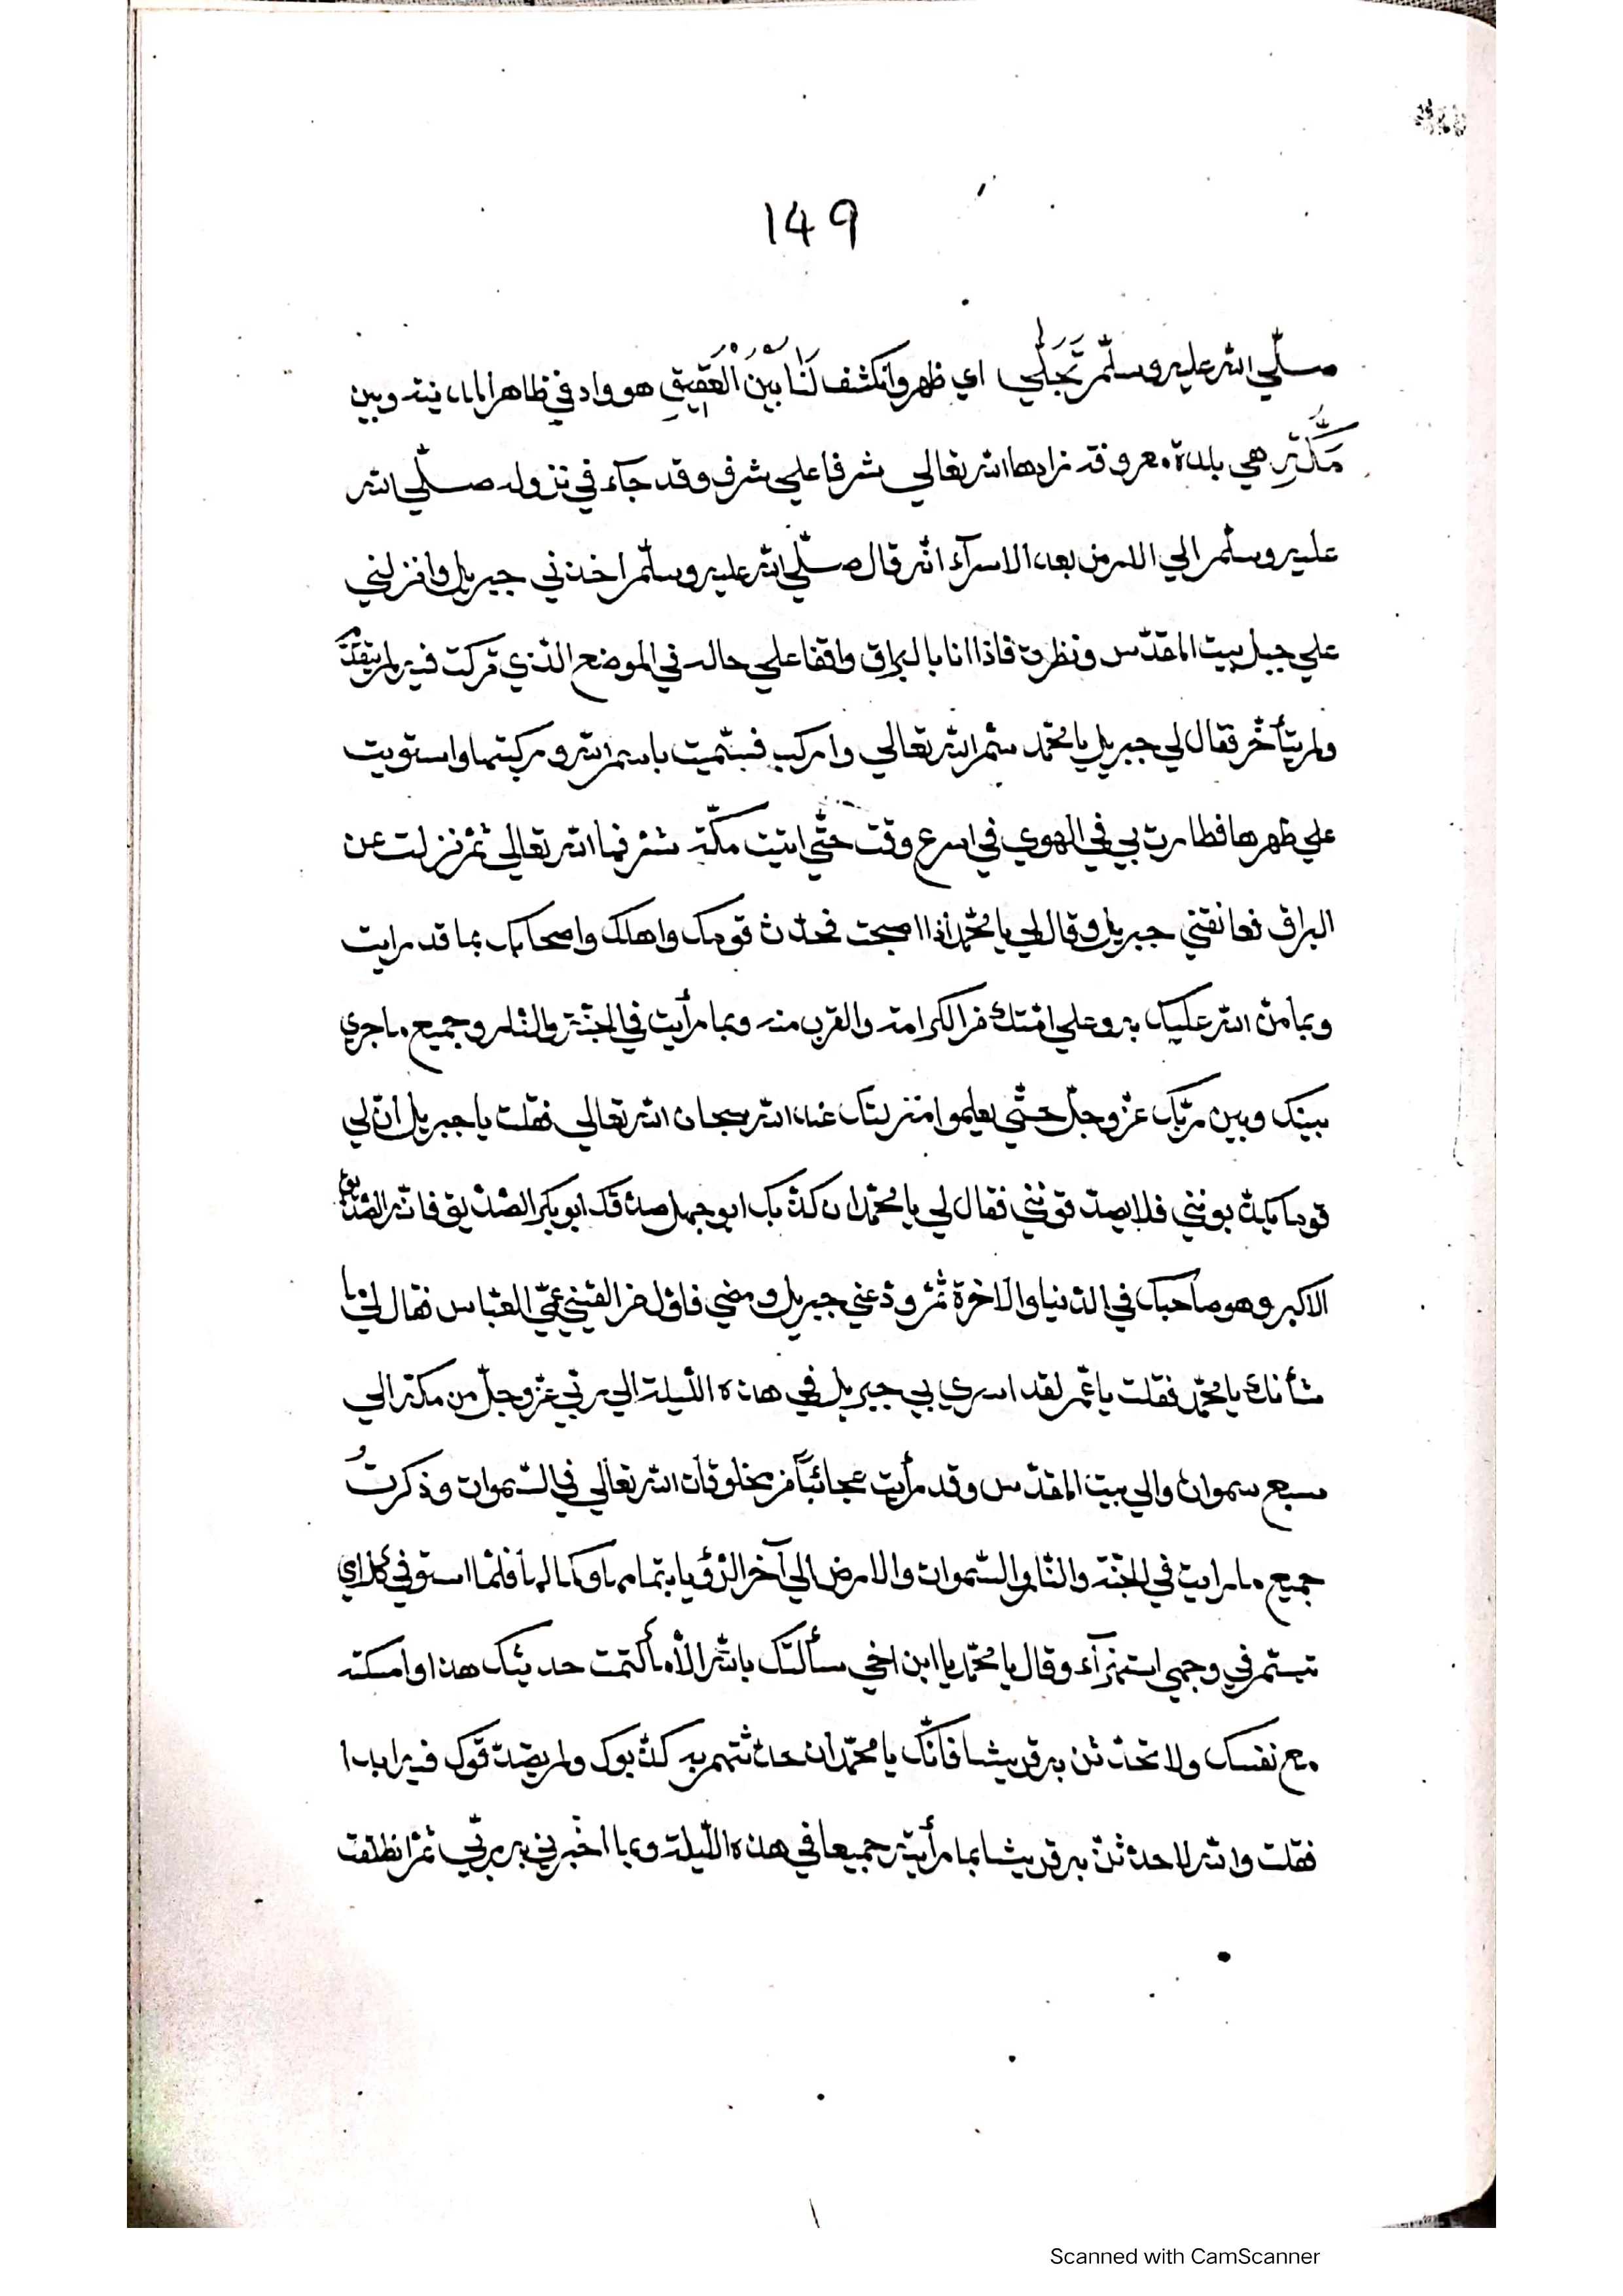 149
صلّي الله عليه وسلّم تَجَلَّي اي ظهر وانكشف لَنَا بَيْنَ الْعَقِيقِ هو واد في ظاهر المدينة وبين
مَكَّةِ هي بلدة معروفة زادها الله تعالي شرفا علي شرف وقد جآء في نزوله صلّي الله
عليه وسلّم الي الارض بعد الاسرآء انّه قال صلّي الله عليه وسلّم اخذني جبريل وانزلني
علي جبل بيت المقدّس ونظرت فاذا انا بالبراق واقفا علي حاله في الموضع الذّي تركت فيه لم يتقدّم
ولم يتأخّر فقال لي جبريل يا محمّد سمّ الله تعالي واركب فسمّيت باسم الله وركبتها واستويت
علي ظهرها فطارت بي في الهوي في اسرع وقت حتّي اتيت مكّة شرّفها الله تعالي ثمّ نزلت عن
البراق فعانقني جبريل وقال لي يا محمّد اذا اصبحت فحدّث قومك واهلك واصحابك بما قد رايت
وبما منّ الله عليك به وعلي امّتك من الكرامة والقرب منه وبما رأيت في الجنّة والنّار وجميع ما جري
بينك وبين ربّك عزّ وجلّ حتّي يعلموا منزلتك عند الله سبحان الله تعالي فقلت يا جبريل انّ لي
قوما يكذّبونني فلا يصدّقونني فقال لي يا محمّد ان كذّبك ابو جهل صدّقك ابو بكر الصّدّيق فانّه الصّدّيق
الاكبر وهو صاحبك في الدّنيا والآخرة ثمّ ودّعني جبريل ومضي فاوّل من القيني عمّي العبّاس فقال لي ما
شأنك يا محمّد فقلت يا عمّ لقد اسري بي جبريل في هذه اللّيلة الي ربّي عزّ وجلّ من مكة الي
سبع سموات والي بيت المقدّس وقد رأيت عجائبًا من مخلوقات الله تعالي في السّموات وذكرتُ
جميع ما رايت في الجنّة والنّار والسّموات والارض الي آخر الرّؤيا بتمامها وكمالها فلمّا استوفي كلامي
تبسّم في وجهي استهزآء وقال يا محمّد يا ابن اخي سألتك بالله الاّ ما كتمت حديثك هذا وامسكته
مع نفسك ولا تحدّثن به قريشا فانّك يا محمّد ان حدّثتهم به كذّبوك ولم يصدّقوك فيه ابدا
فقلت والله لاحدثنّ به قريشا بما رأيته جميعا في هذه اللّيلة وبما اخبرني به ربّي ثمّ انطلقت
Scanned with CamScanner